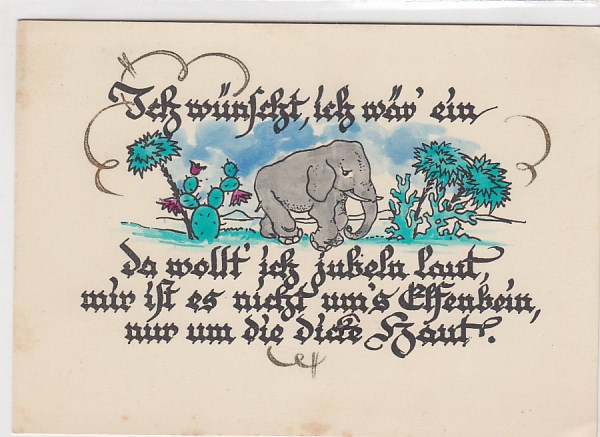 Ich wünscht, ich wär' ein
da wollt' ich jubeln laut,
mir ist es nicht um's Elfenbein,
nur um die dicke Haut.